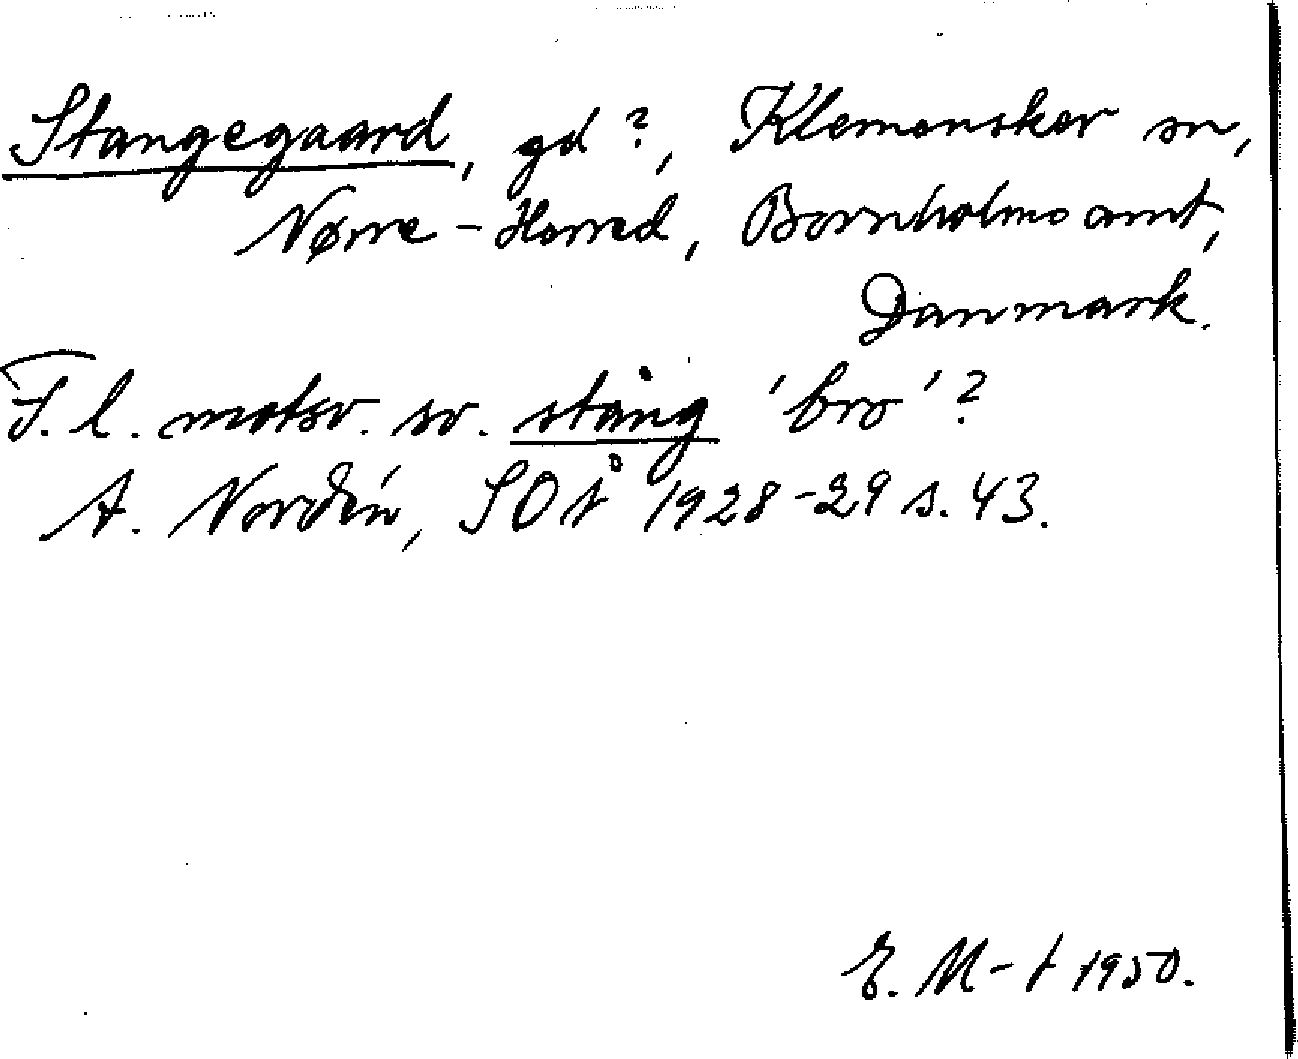 Stangegaard, gd?, Klemensker sn,
Nørre-Herred, Bornholms amt,
Danmark.
F.l. motsv. sv. stång 'bro'?
A. Nordén, SOÅ 1928-29 s. 43.
E. M-t 1950.